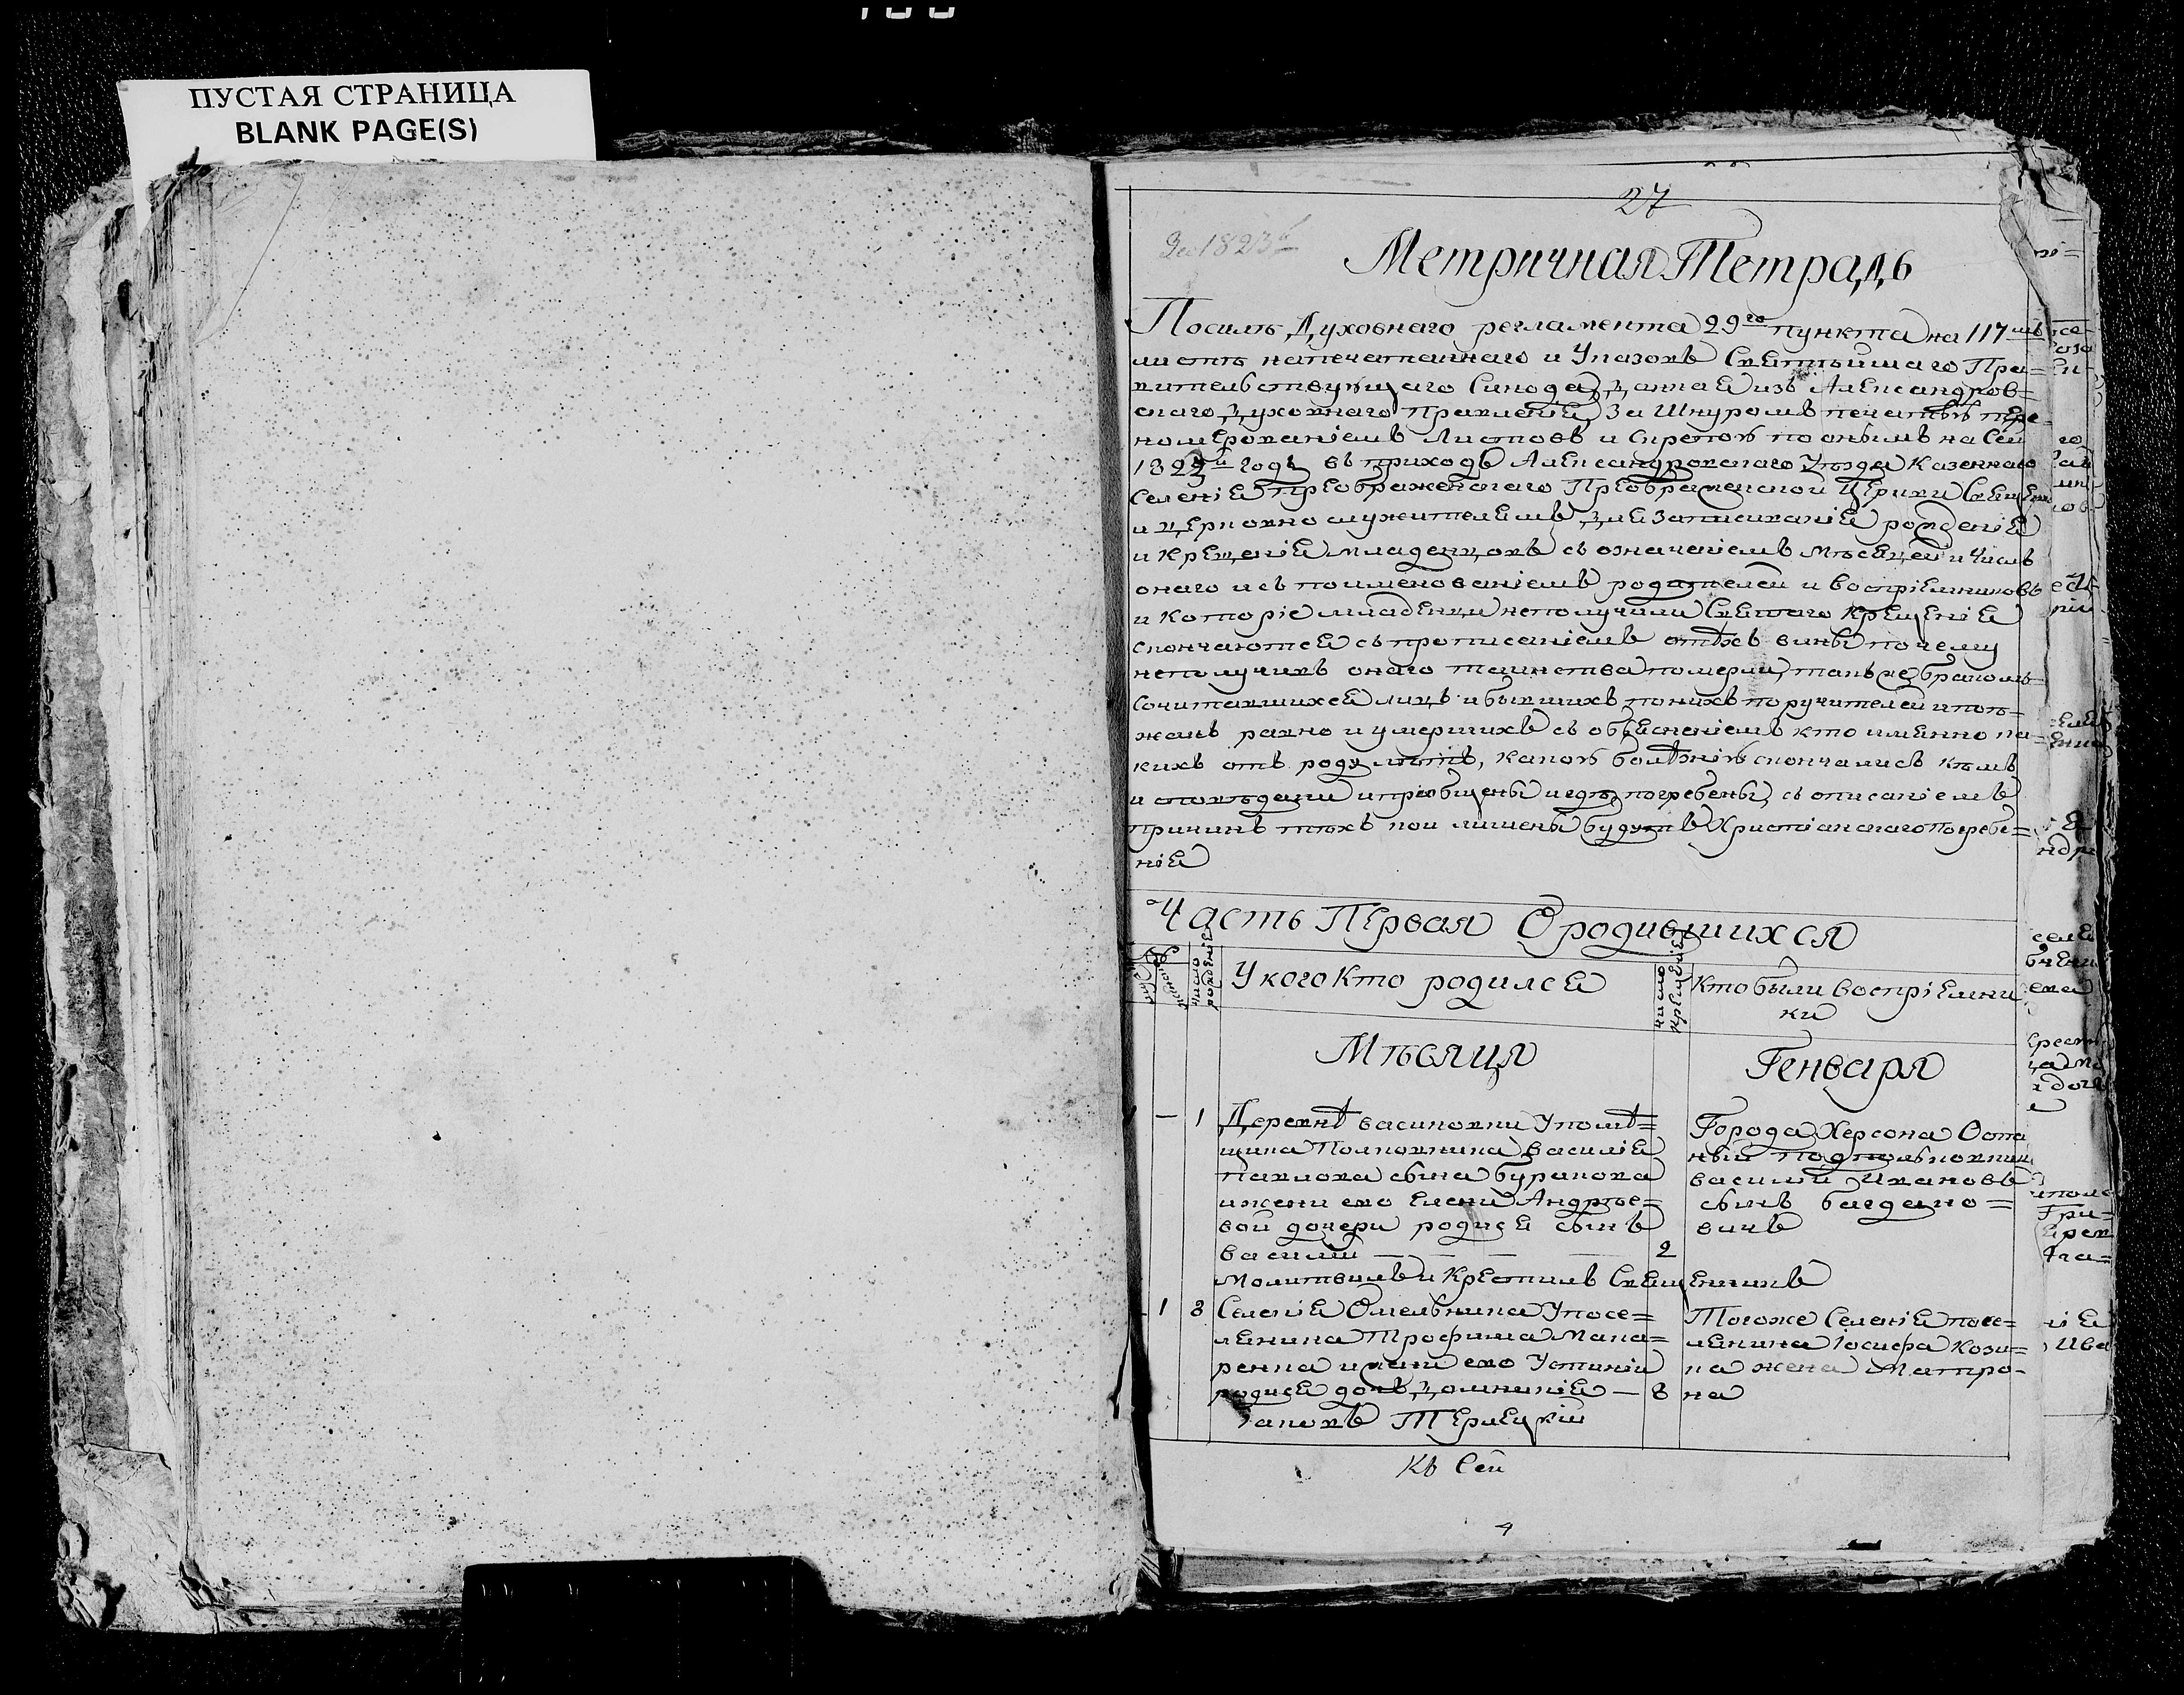 ПУСТАЯ СТРАНИЦА
BLANK PAGE(S)
27
За 1823й
Метричная Тетрадь
По силѣ Духовнаго регламента 29го пункта на 117мъ
листѣ напечатаннаго и Указовъ Святѣйшаго Пра=
вительствующаго Синода, данная изъ Александров=
скаго Духовнаго Правленія за Шнуромъ печатью
номерованіемъ Листовъ и Скрепою по онымъ на Сей
годъ въ приходъ Александровскаго Уѣзда Казеннаго
Селеніе Преображенскаго Преображенской Церкви
и церковно служителемъ для Записиваніе рожденіе
и Крещеніе младенцовъ съ означеніемъ Мѣсяцей и Чисъ
онаго и съ поименованіемъ родителей и воспріемниковъ
и Которіе младенци неполучили Святаго Крещеніе
скончаются съ прописаніемъ отъ вины почему
неполучивъ онаго таинства померли, такъ же бракомъ
Сочитавшихся лицъ и бывшихъ по нихъ поручителей и
равно и умершихъ съ объясненіемъ кто именно
кихъ отъ роду лѣтъ, какою болѣзнію скончались кѣмъ
и исповѣдани и пріобщены и гдѣ погребены, съ описаніемъ
причинъ тѣхъ кои лишены будутъ Христіанскаго Погребе=
ніе
Часть Первая О родившихся
число рожденіе
У кого Кто родился
число крещеніе
Кто были воспріемни
ки
Мѣсяця
Генваря
1 Деревнѣ васиновки У помѣ=
щика Полковника Василіе
Павлова сына буракова
и жени его Елени Андрѣе=
вой дочери родися сынъ
василій — 2
Города Херсона
ный подполковник
василій Ивановъ
сынъ
вичъ
Молитвилъ и Крестилъ Священникъ
1 8 Селеніе Омельника У посе=
ленина Трофима Мака=
ренка и жени его Устиніи
родися дочь Домникіе — 8
Тогоже Селеніе посе=
ленина Іосифа Кози=
ка жена Матро-
на
Іаковъ Терлецкій
Къ Сей